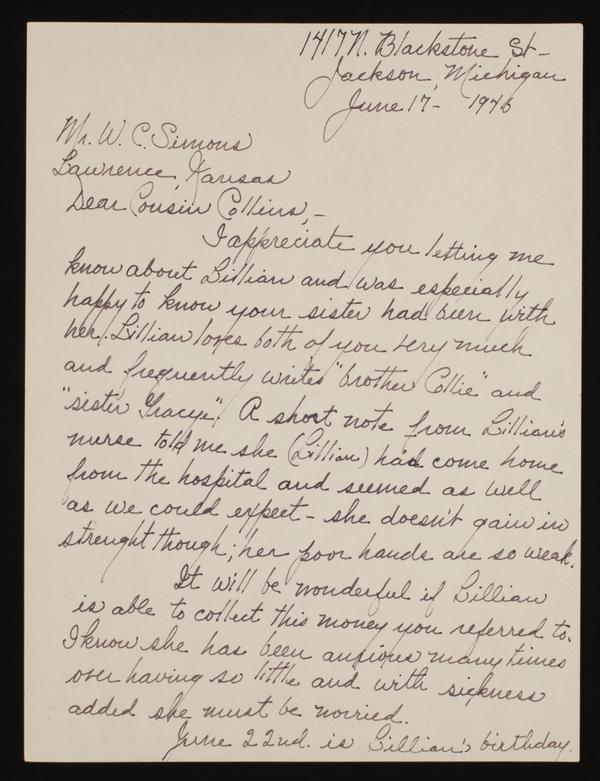 1417 N. Blackstone St-
Jackson, Michigan
June 17- 1946
Mr. W. C. Simons
Lawrence, Kansas
Dear Cousin Collins,-
I appreciate you letting me
know about Lillian and was especially
happy to know your sister had been with
her. Lillian loves both of you very much
and frequently writes "brother Collie" and
"sister Gracye". A short note from Lillian's
nurse told me she (Lillian) had come home
from the hospital and seemed as well
as we could expect - she doesn't gain in
strenght though; her poor hands are so weak.
It will be wonderful if Lillian
is able to collect this money you referred to.
I know she has been anxious many times
over having so little and with sickness
added she must be worried.
June 22nd. is Lillian's birthday.